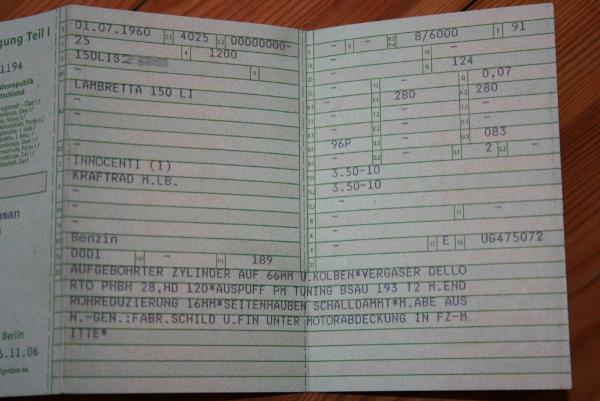 gung Teil I
1194
desrepublik
tschland
01.07.1960 4025 00000000-
25 4 1200
150LIS
-
LAMBRETTA 150 LI
-
-
INNOCENTI (I)
KRAFTRAD M.LB.
-
-
Benzin
0001 - 189
- 9 - 8/6000 T 91
- -
- 124
- 0,07
- 280 280
- - -
- - -
96P - 083
- - 2 -
3.50-10
3.50-10
-
- -
-
- E UG475072
AUFGEBOHRTER ZYLINDER AUF 66MM U.KOLBEN*VERGASER DELLO
RTO PHBH 28,HD 120*AUSPUFF PM TUNING BSAU 193 T2 M.END
ROHREDUZIERUNG 16MM*SEITENHAUBEN SCHALLDAMMT*M.ABE AUS
N.-GEN.:FABR.SCHILD U.FIN UNTER MOTORABDECKUNG IN FZ-M
ITTE*
man
Berlin
.11.06